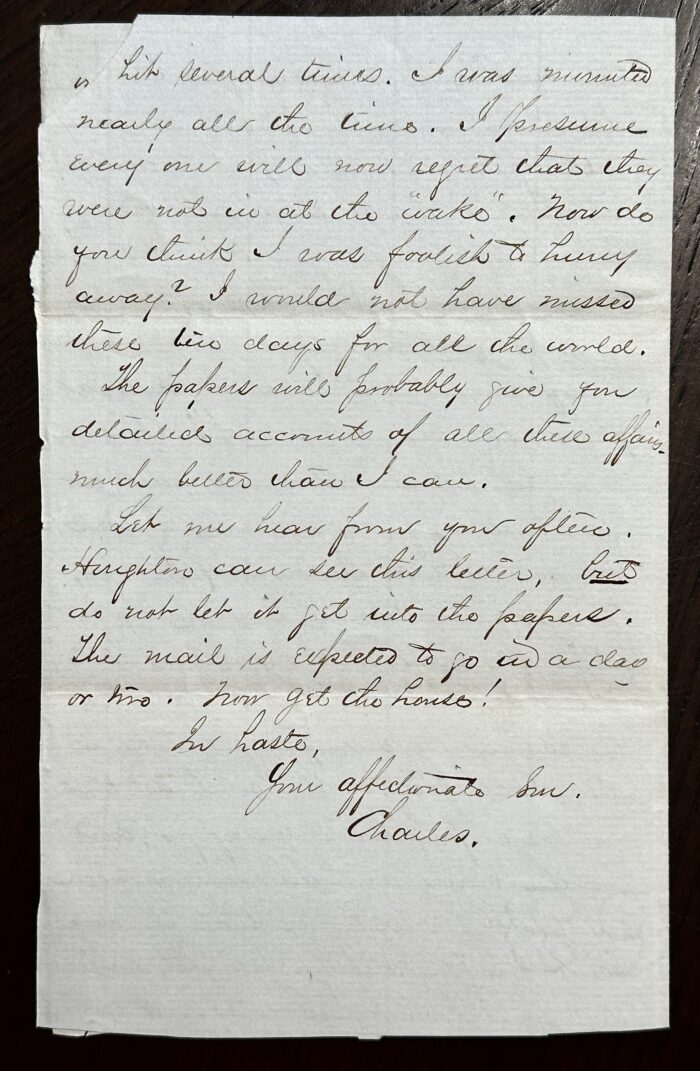 hit several times. I was mounted
nearly all the time. I presume
every one will now regret that they
were not in at the "wake". Now do
you think I was foolish to hurry
away? I would not have missed
these ten days for all the world.
The papers will probably give you
detailed accounts of all these affairs
much better than I can.
Let me hear from you often.
Houghton can see this letter, but
do not let it get into the papers.
The mail is expected to go in a day
or two. Now get the house!
In haste,
Your affectionate Son.
Charles.